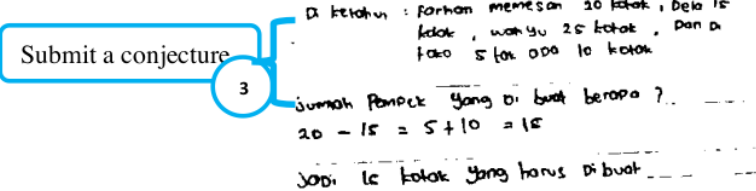 Submit a conjecture
3
Di ketahui : Farhan memesan 20 kotak, Dela 15
kotak, wahyu 25 kotak, Dan Di
toko 5 tak ada 10 kotak
jumlah Pempek yang Di buat berapa ?
20 - 15 = 5 + 10 = 15
JaDi 15 kotak yang harus Dibuat